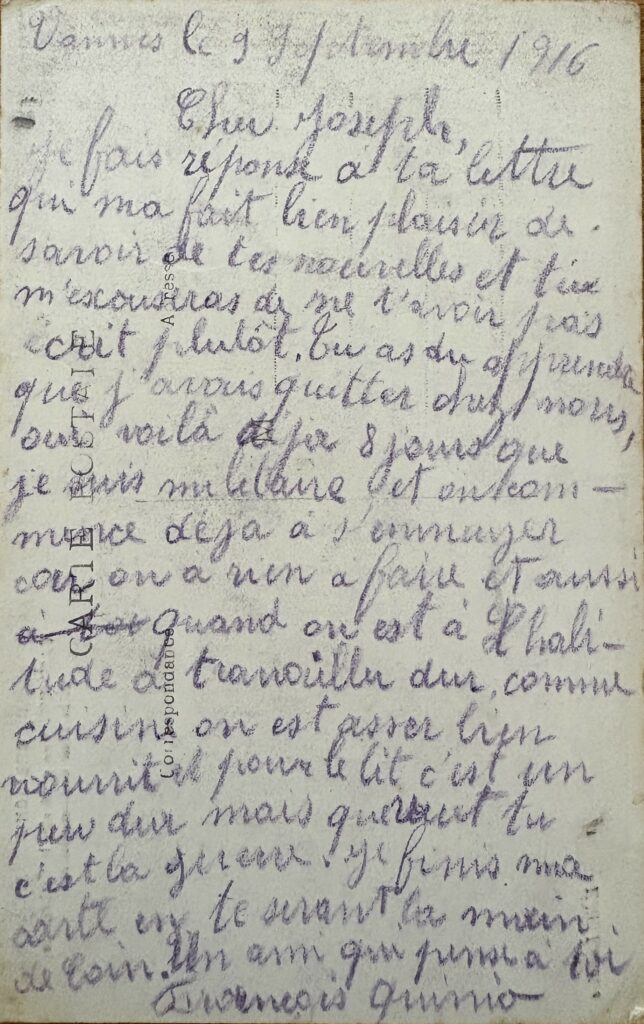 Vannes le 9 Septembre 1916
Cher Joseph,
je fais réponse à ta lettre
qui ma fait bien plaisir de
savoir de tes nouvelles et tu
m'excuseras de ne t'avoir pas
écrit plutôt. Tu as du apprendre
que j'avais quitter chez nous,
oui voilà déja 8 jours que
je suis militaire et on com-
mence déja à s'ennuyer
car on a rien a faire et aussi
à toi quand on est à L'habi-
tude a travailler dur, comme
cuisine on est asser bien
nourrit et pour le lit c'est un
peu dur mais que veut tu
c'est la guerre. je finis ma
carte en te serant la main
de loin. Un ami qui pense à toi
François Quinio
CARTE POSTALE
Correspondance
Adresse